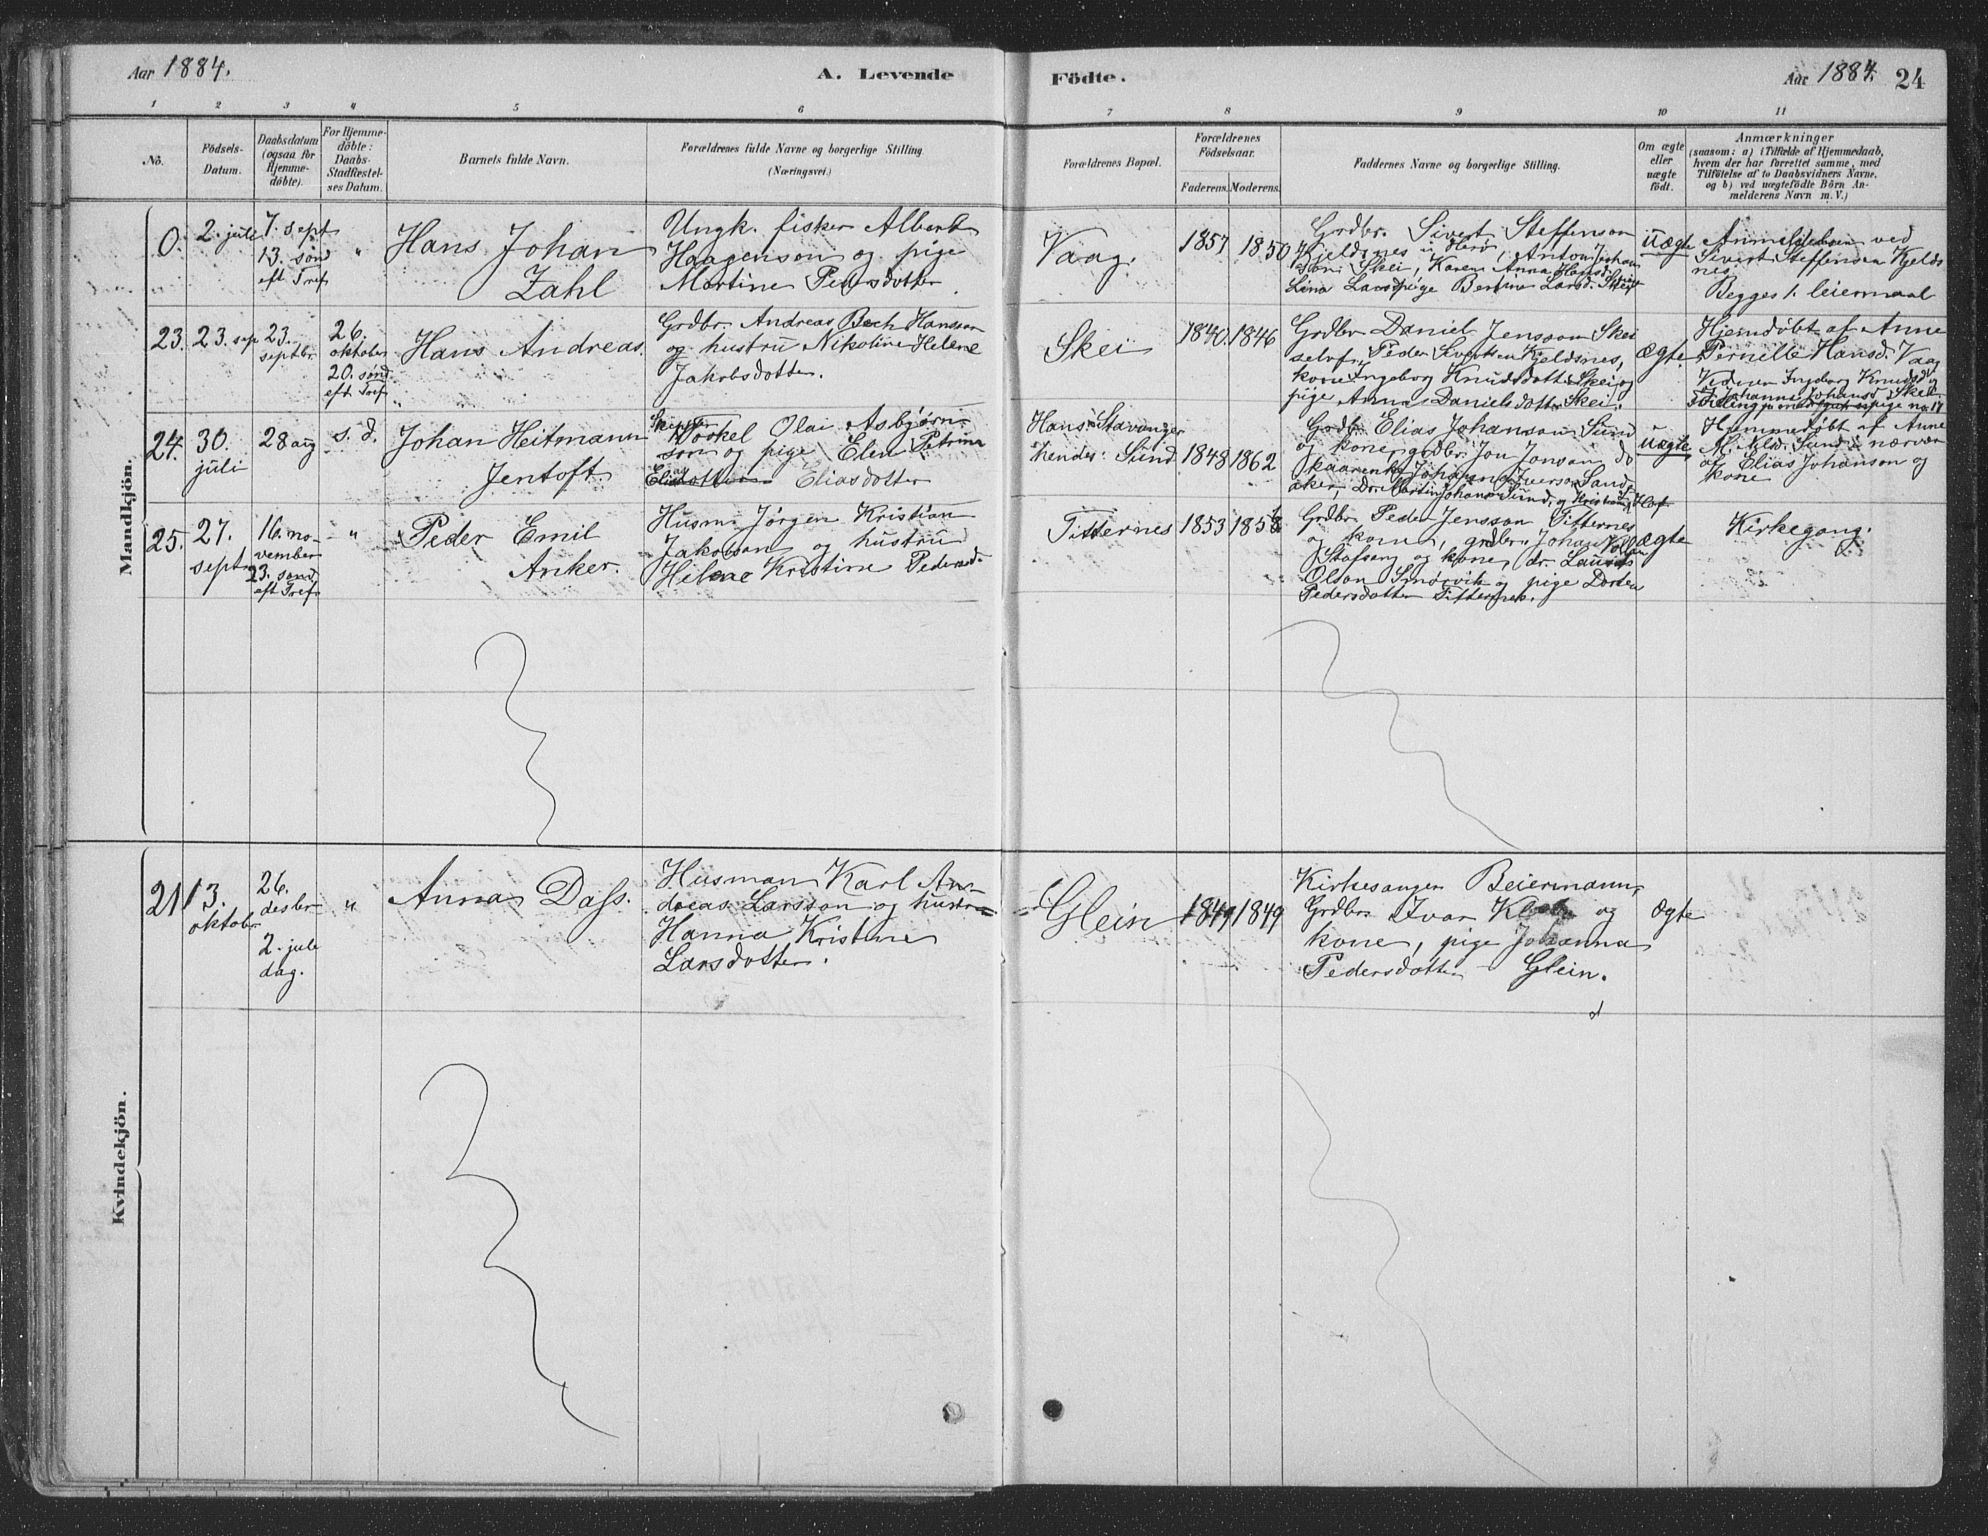 Aar 1884.
A. Levende
Födte.
Aar 1884.
24
1 2 3 4 5 6 7 8 9 10 11
No.
Födsels-
Datum.
Daabsdatum
(ogsaa for
Hjemme-
döbte).
For Hjemme-
döbte:
Daabs-
Stadfæstel-
ses Datum.
Barnets fulde Navn.
Forældrenes fulde Navne og borgerlige Stilling
(Næringsvei.)
Forældrenes Bopæl.
Forældrenes
Födselsaar.
Faderens.
Moderens.
Faddernes Navne og borgerlige Stilling.
Om ægte
eller
uægte
födt.
Anmærkninger
(saasom: a) i Tilfælde af Hjemmedaab,
hvem der har forrettet samme, med
Tilföielse af to Daabsvidners Navne,
og b) ved uægtefödte Börn An-
melderens Navn m. V.)
Mandkjön.
0.
2. juli
7. sept
13. sønd
eft Tref
"
Hans Johan
Zahl
Ungk. fisker Albert
Haagenson og pige
Martine Pedersdotter
Vaag.
1857
1850
Grdbr. Sivert Steffenson
Kjeldsnes i Herø, Anton Johan
son Skei, Karen Anna Hansd.
Lina Larsd pige Larsd. Skei
Uægte
Anmeldelsen ved
Sivert Steffensen Kjelds
nes.
Begges 1. leiermaal
23.
23. sep
23.
septbr.
26.
oktober
20. sønd
eft Tref
Hans Andreas.
Grdbr. Andreas Bech Hansson
og hustru Nikoline Helene
Jakobsdotter.
Skei
1840.
1846
Grdbr Daniel Jensson Skei
selvf. Peder Sivertsen Kjeldsnes,
kone Ingeborg Knudsdotter Skei og
pige Anna Danielsdotter Skei.
Ægte.
Hjemdøbt af Anne
Pernille Hansd. Vaag
Vidner Ingeborg Knudsd og
Johanna Johansd. Skei
24.
30.
juli
28 aug
s. d.
Johan Heitmann
Jentoft.
Skipper
Torkel Olai Asbjørn-
son og pige Elen Petrine
Eliasdotter
Hans: Stavanger
hendes: Sund
1848
1862
Grdbr. Elias Johanson Sund
og kone, grdbr. Jon Jonson do
Johan Iverson Sand
aker, Sund, og
uægte
Hjemmedøbt af Anne
M. Sund i nærvær
af Elias Johanson og
kone
25.
27.
sept
16. no-
vember
23. sønd
eft Tref
"
Peder Emil
Anker.
Husm. Jørgen Kristian
Jakobson og hustru
Helene Kristine Pedersd.
Titternes
1853
1858
Grdbr. Peder Jensson Titternes
og kone, grdbr. Johan
og kone, dr. Laurits
Olson Smørvik og pige Dorthea
Pedersdotter Titternes.
ægte
Kirkegang.
Kvindekjön.
21
13.
oktober
26.
desbr
2. jule
dag.
"
Anna Dass.
Husman Karl An-
dreas Larsson og hustru
Hanna Kristine
Larsdotter.
Glein
1849
1849
Kirkesanger Beiermann,
Grdbr. Ivar og
kone, pige Johanna
Pedersdotter Glein.
Ægte